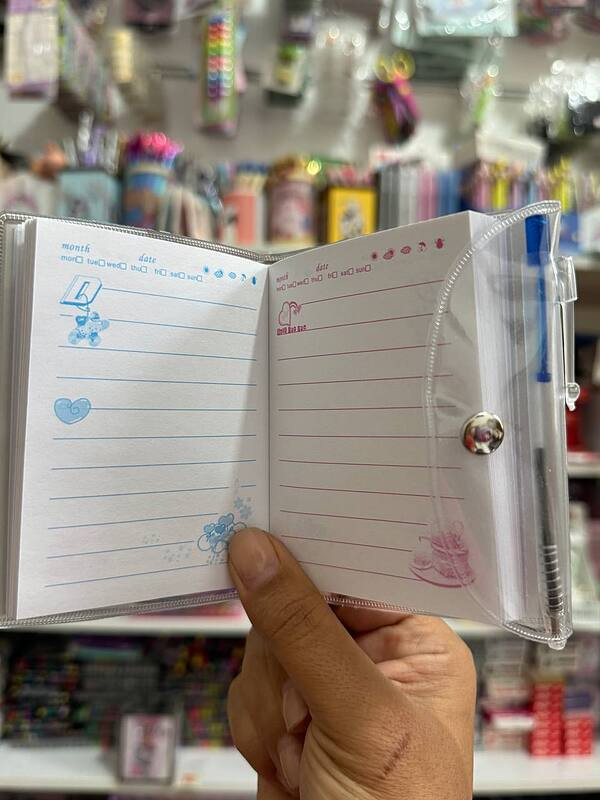 month
date
mon tue wed thu fri sat sun
month
date
mon tue wed thu fri sat sun